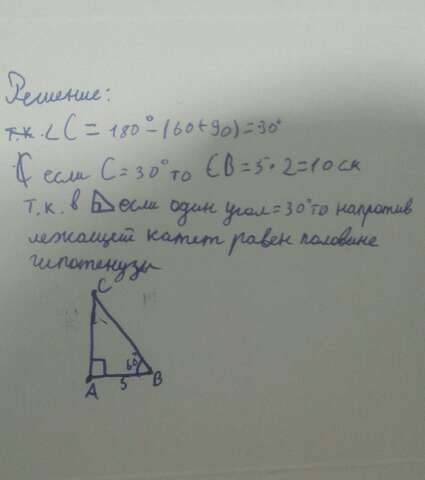 Решение:
т.к. ∠C = 180° - (60+90)=30°
если C = 30° то CB = 5·2=10 см
т.к. в ⊿ если один угол = 30° то напротив
лежащей катет равен половине
гипотенузы
C
60°
A 5 B